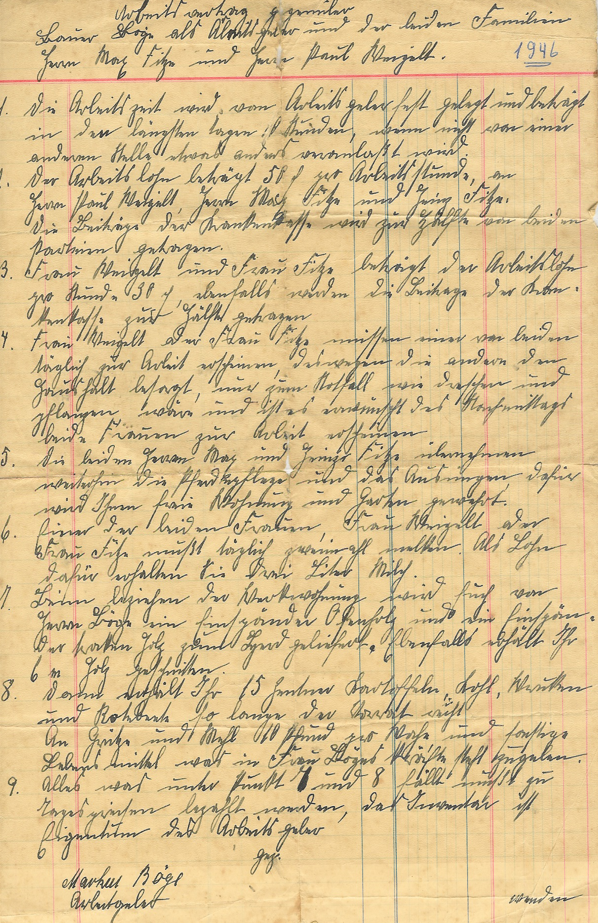 Arbeitsvertrag gegenüber
Bauer Böge als Arbeitsgeber und der beiden Familien
Herrn Max Fitze und Herrn Paul Weigelt.
1946
1. Die Arbeitszeit wird vom Arbeitsgeber fest gelegt und beträgt
in den längsten Tagen 10 Stunden, wenn nicht von einer
anderen Stelle etwas anders veranlaßt wird
2. Der Arbeitslohn beträgt 58 ₰ pro Arbeitsstunde, an
Herrn Paul Weigelt, Herrn Max Fitze und Heinz Fitze.
Die Beiträge der Krankenkasse wird zur Hälfte von beiden
Parteien getragen.
3. Frau Weigelt und Frau Fitze beträgt der Arbeitslohn
pro Stunde 30 ₰, ebenfalls werden die Beitrage der Kran-
kenkasse zur Hälfte getragen
4. Frau Weigelt oder Frau Fitze müssen einer von beiden
täglich zur Arbeit erscheinen, deswegen die andere den
Haushalt besorgt, nur zum Notfall wie dreschen und
pflanzen, wäre und ist es erwünscht des Nachmittags
beide Frauen zur Arbeit erscheinen
5. Die beiden Herrn Max und Heinz Fitze übernehmen
weiterhin die Pferdepflege und das Ausmisten dafür
wird Ihnen freie Wohnung und Garten gewehrt.
6. Einer der beiden Frauen Frau Weigelt oder
Frau Fitze mußt täglich zweimahl melken. Als Lohn
dafür erhalten Sie drei Liter Milch.
7. Beim beziehen der Werkwohnung wird Euch von
Herrn Böge ein Einspänder Ofenholz und die Einspän-
der trocken Holz zum Herd geliefert. Ebenfalls erhält Ihr
6 m Holz geschnitten.
8. Dann erhält Ihr 15 Zentner Kartoffeln, Kohl, Wruken
und Rotebeete so lange der Vorrat reicht
An Grütze und Mehl 10 Pfund pro Woche und sonstige
Lebensmittel was in Frau Böges Kräfte steht zugeben.
9. Alles was unter Punkt 7 und 8 fällt mußt zu
Tagespreisen bezahlt werden, das Inventar ist
Eigentum des Arbeitsgeber
gez.
Markus Böge
Arbeitgeber
wenden